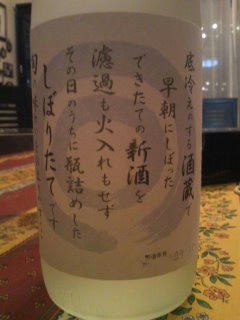 底冷えのする酒蔵で
早朝にしぼった
できたての新酒を
濾過も火入れもせず
その日のうちに瓶詰めした
しぼりたてです